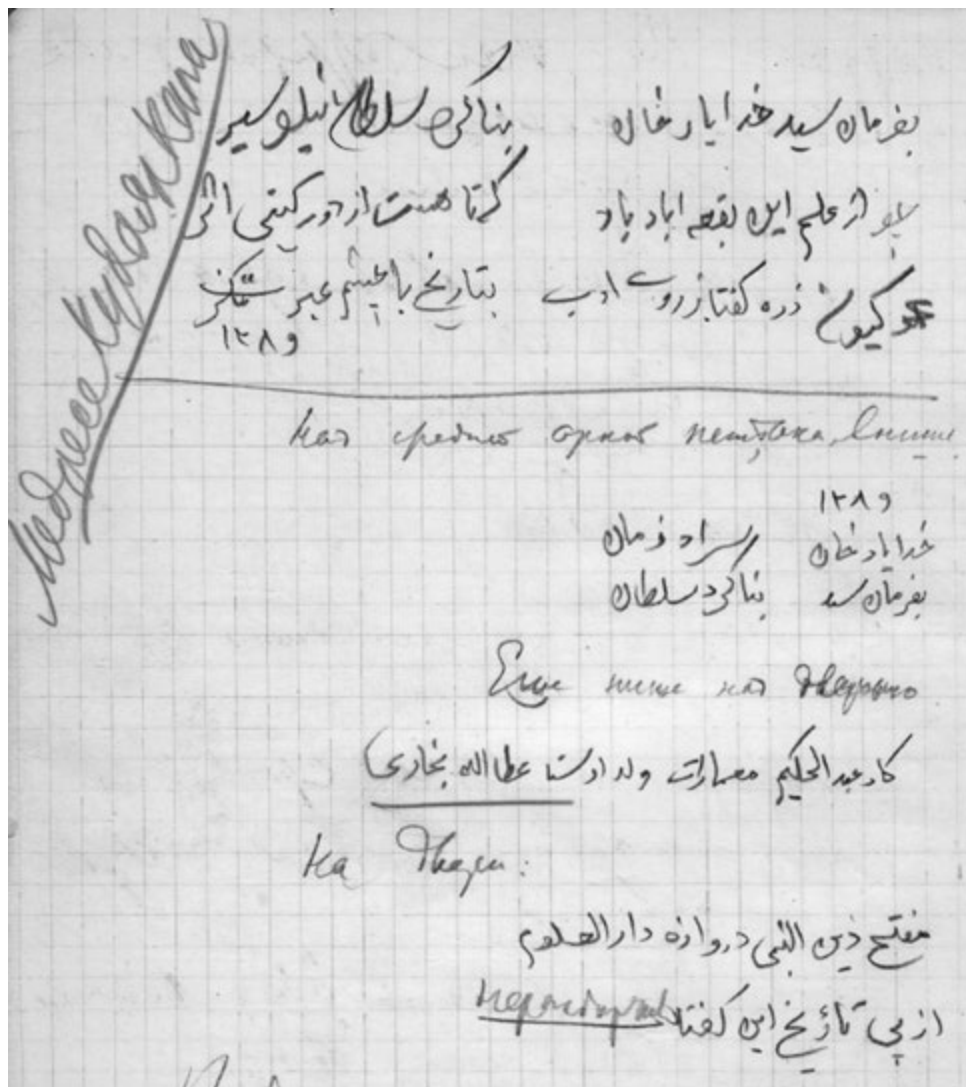 Медресе Кудояр Хана
بفرمان سید خدایار خان بنا کرد سلطان نیکو سیر
چو از علم این بقعه اباد باد که تا هست از دور کیتی اثر
ذره کفتا ز روی ادب بتاریخ با چشم عبرت نکر
۱۲۸۹
Над средней аркой пештака, внизу
۱۲۸۹
خدایار خان فرمان
بفرمان سید بنا کرد سلطان
Еще ниже над дверью
کار عبدالحکیم معمارات ولد اوستا عطا الله بخاری
На двери:
مفتح دین النبی دروازه دار العلوم
از پی تاریخ این کفتا неразборчиво